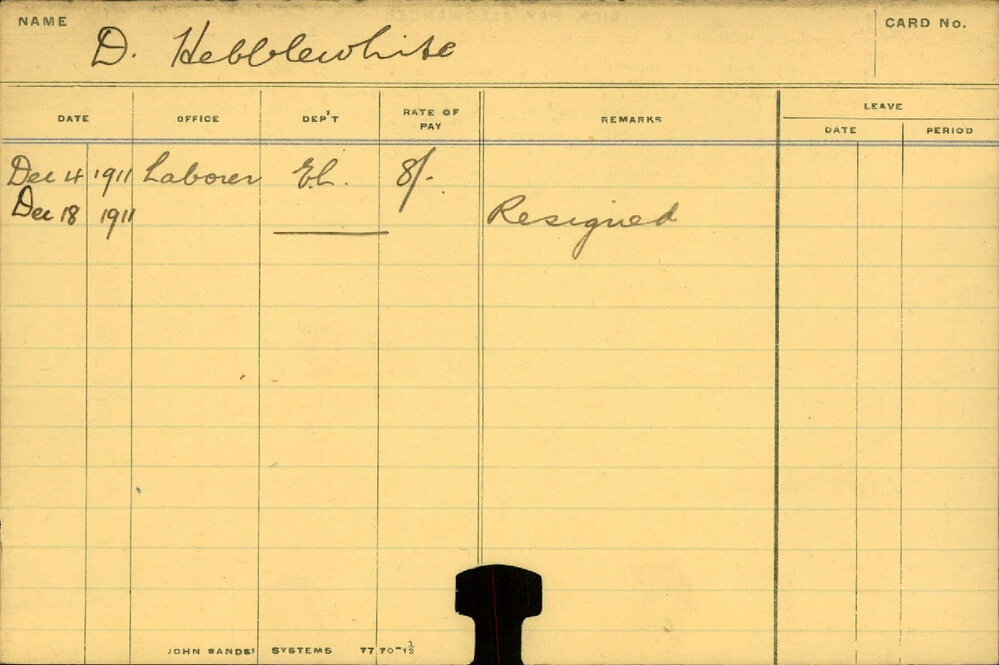 NAME D. Hebblewhite CARD No.
DATE OFFICE DEP'T RATE OF PAY REMARKS LEAVE
DATE PERIOD
Dec 4 1911 Laborer E.L. 8/-
Dec 18 1911 Resigned
JOHN SANDS' SYSTEMS 77 70